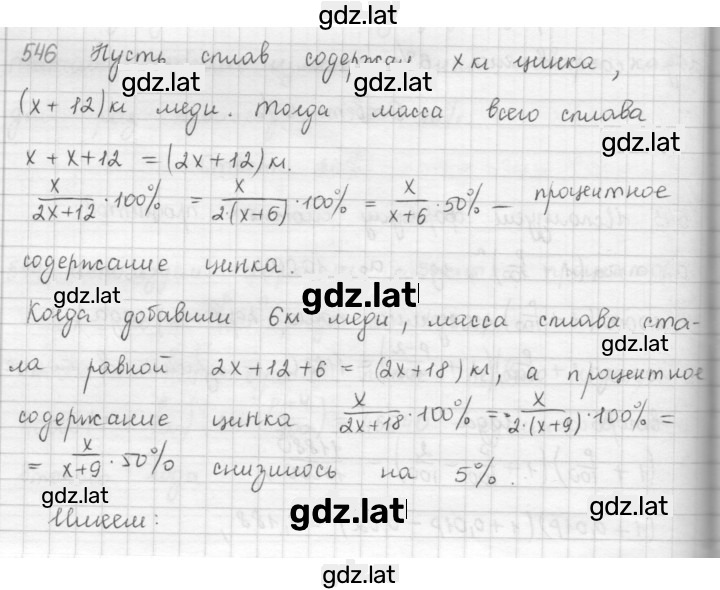 gdz.lat
546 Пусть сплав содержал x кг цинка,
gdz.lat gdz.lat
(x + 12) кг меди. Тогда масса всего сплава
gdz.lat
x + x + 12 = (2x + 12) кг.
x/(2x+12) · 100% = x/(2·(x+6)) · 100% = x/(x+6) · 50% — процентное
содержание цинка.
gdz.lat gdz.lat
Когда добавили 6 кг меди, масса сплава ста-
gdz.lat
ла равной 2x + 12 + 6 = (2x + 18) кг, а процентное
содержание цинка x/(2x+18) · 100% = x/(2·(x+9)) · 100% =
= x/(x+9) · 50% снизилось на 5%.
gdz.lat gdz.lat gdz.lat
Имеем:
gdz.lat